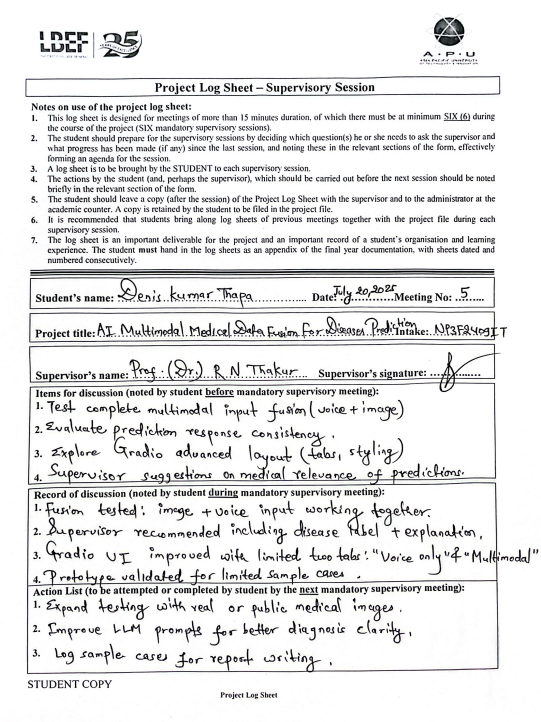 LBEF 25
YEARS OF EXCELLENCE
A · P · U
ASIA PACIFIC UNIVERSITY
OF TECHNOLOGY & INNOVATION
Project Log Sheet – Supervisory Session
Notes on use of the project log sheet:
1. This log sheet is designed for meetings of more than 15 minutes duration, of which there must be at minimum SIX (6) during
the course of the project (SIX mandatory supervisory sessions).
2. The student should prepare for the supervisory sessions by deciding which question(s) he or she needs to ask the supervisor and
what progress has been made (if any) since the last session, and noting these in the relevant sections of the form, effectively
forming an agenda for the session.
3. A log sheet is to be brought by the STUDENT to each supervisory session.
4. The actions by the student (and, perhaps the supervisor), which should be carried out before the next session should be noted
briefly in the relevant section of the form.
5. The student should leave a copy (after the session) of the Project Log Sheet with the supervisor and to the administrator at the
academic counter. A copy is retained by the student to be filed in the project file.
6. It is recommended that students bring along log sheets of previous meetings together with the project file during each
supervisory session.
7. The log sheet is an important deliverable for the project and an important record of a student's organisation and learning
experience. The student must hand in the log sheets as an appendix of the final year documentation, with sheets dated and
numbered consecutively.
Student's name: Denis Kumar Thapa Date: July 20, 2025 Meeting No: 5
Project title: AI Multimodal Medical Data Fusion For Diseases Prediction Intake: NP3F2409IT
Supervisor's name: Prof. (Dr.) R N Thakur Supervisor's signature:
Items for discussion (noted by student before mandatory supervisory meeting):
1. Test complete multimodal input fusion (voice + image)
2. Evaluate prediction response consistency.
3. Explore Gradio advanced layout (tabs, styling)
4. Supervisor suggestions on medical relevance of predictions.
Record of discussion (noted by student during mandatory supervisory meeting):
1. Fusion tested: image + voice input working together.
2. Supervisor recommended including disease label + explanation,
3. Gradio UI improved with limited two tabs: "Voice only" & "Multimodal"
4. Prototype validated for limited sample cases.
Action List (to be attempted or completed by student by the next mandatory supervisory meeting):
1. Expand testing with real or public medical images.
2. Improve LLM prompts for better diagnosis clarity.
3. Log sample cases for report writing.
STUDENT COPY
Project Log Sheet